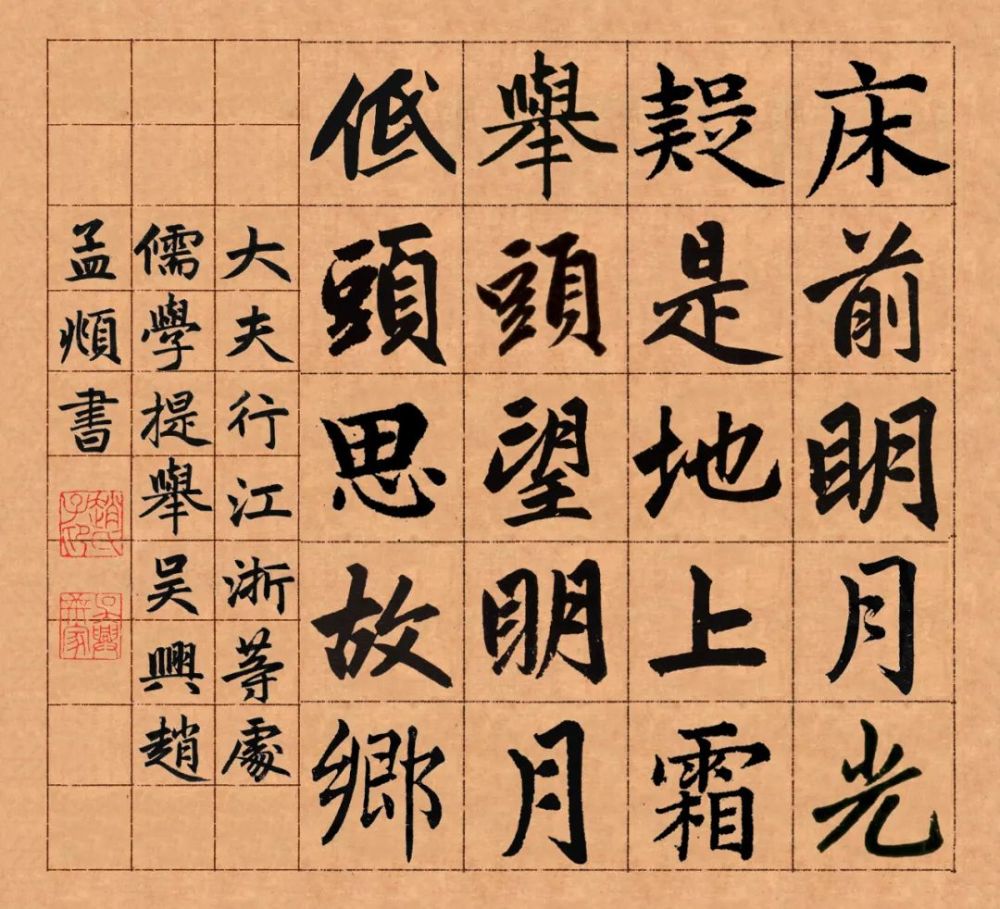 床前明月光
疑是地上霜
舉頭望明月
低頭思故鄉
大夫行江浙等處
儒學提舉吴興趙
孟頫書
趙氏子昂